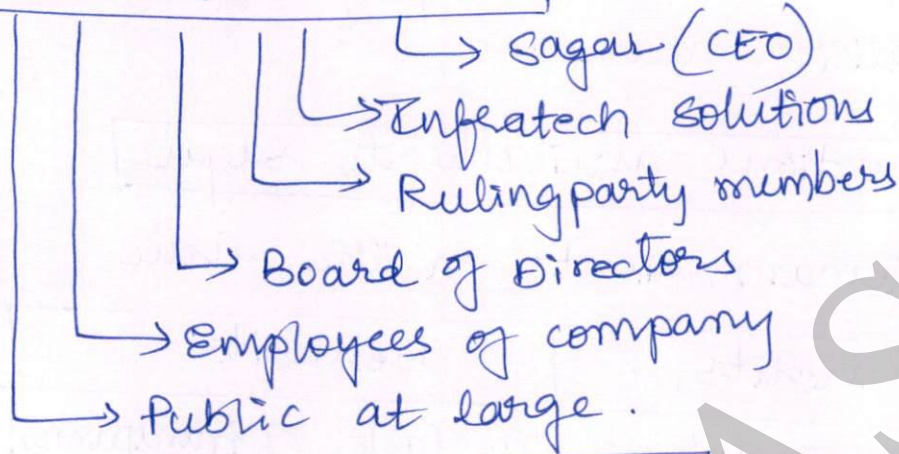 Sagar (CEO)
Infratech solutions
Ruling party members
Board of Directors
Employees of company
Public at large.